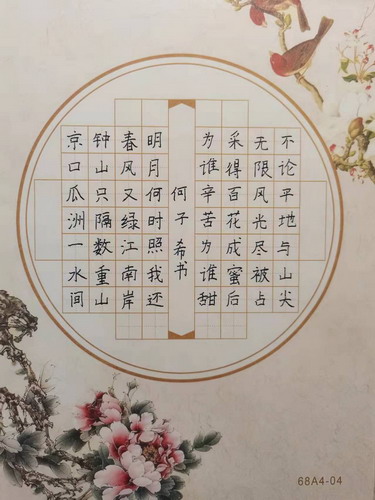 不论平地与山尖
无限风光尽被占
采得百花成蜜后
为谁辛苦为谁甜
何子希书
明月何时照我还
春风又绿江南岸
钟山只隔数重山
京口瓜洲一水间
68A4-04